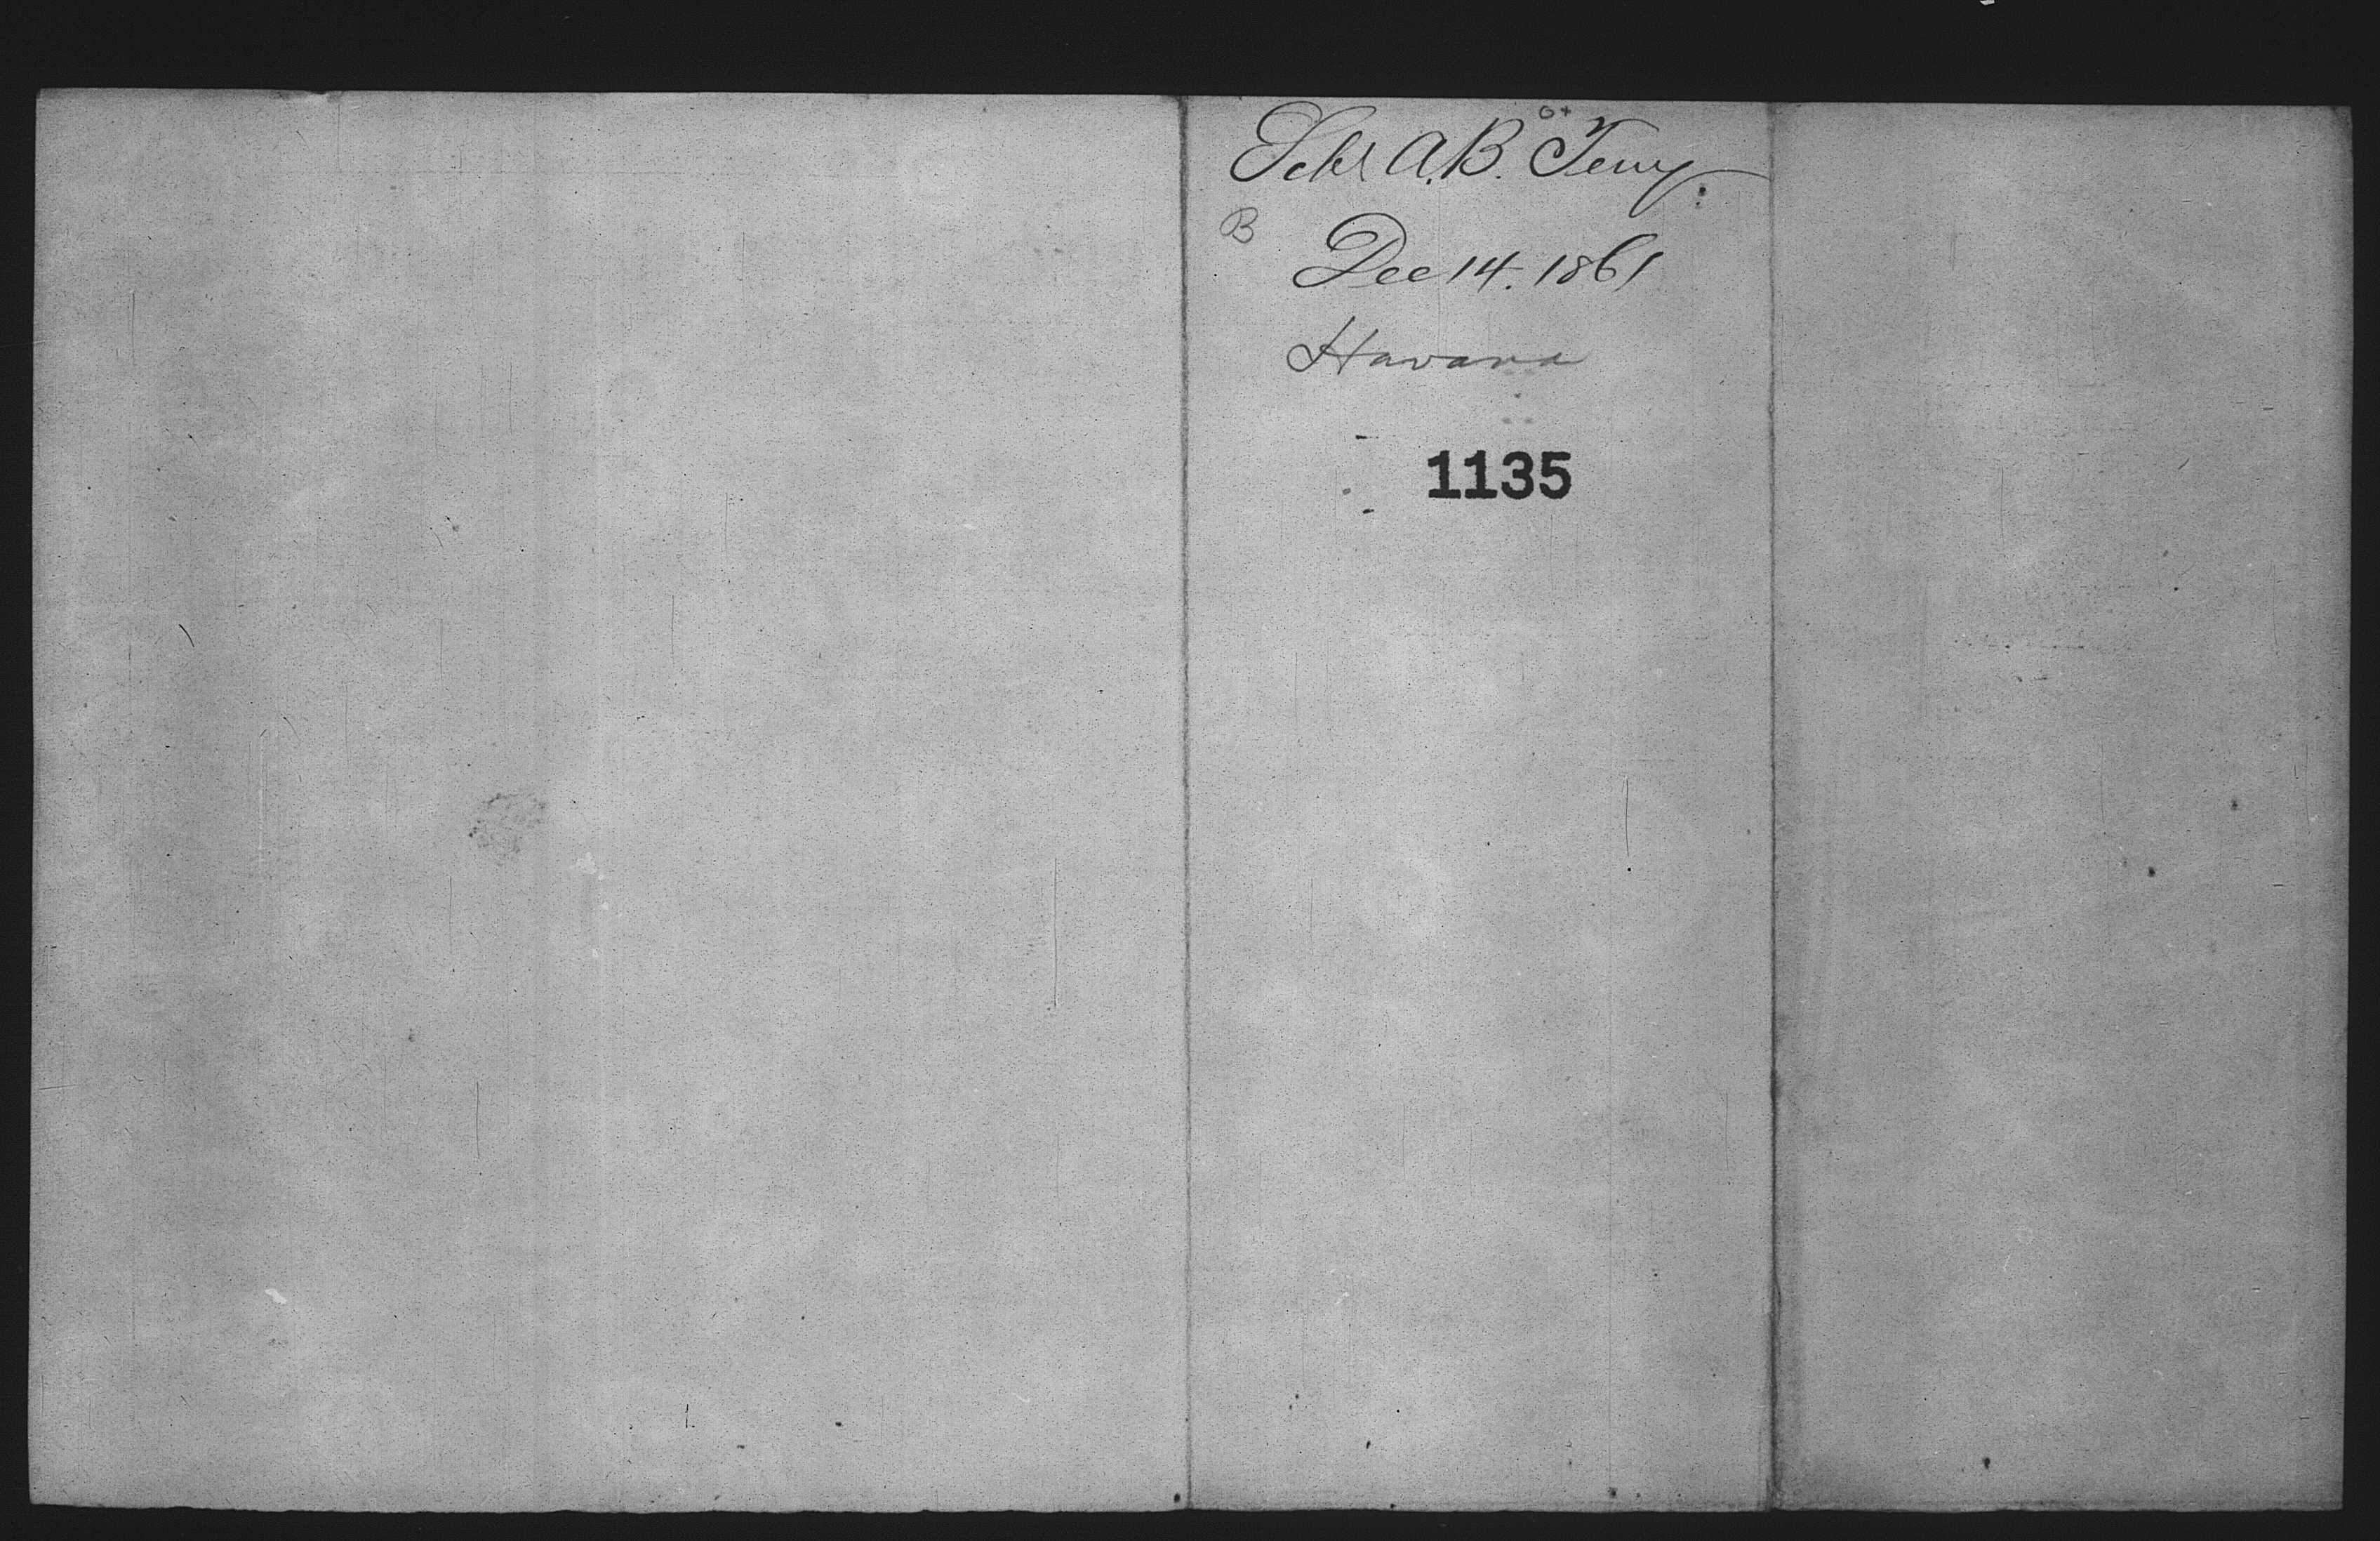 Schr A.B. Terry
B
Dec 14. 1861
Havana
1135